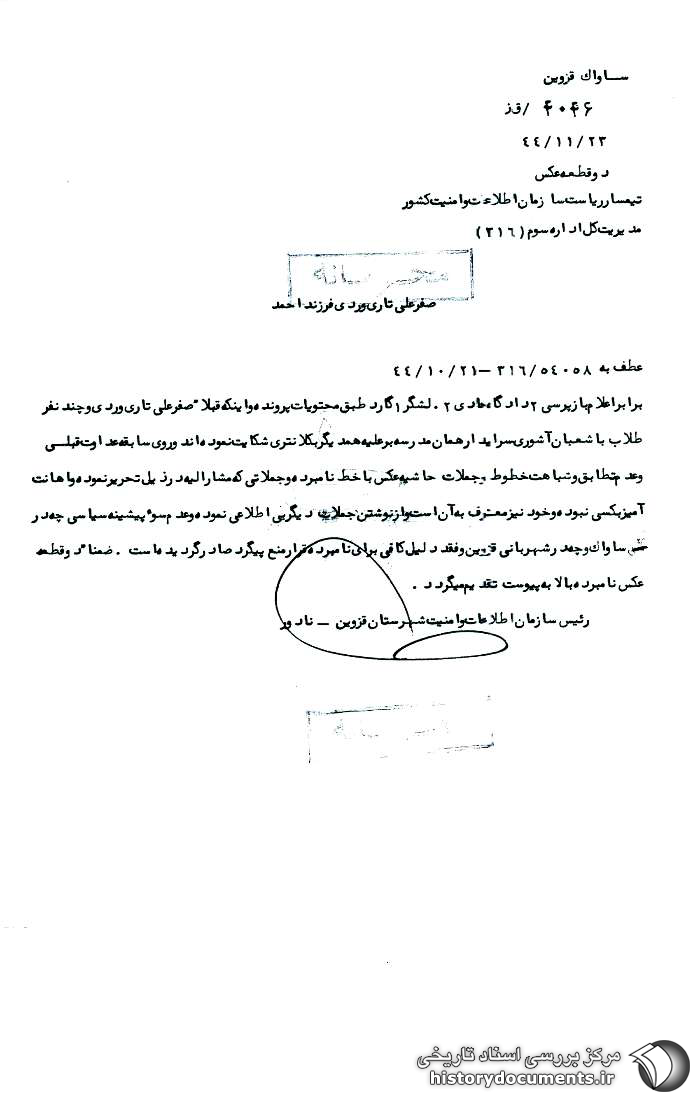 ساواک قزوین
۴۰۴۶ /ق ز
۴۴/۱۱/۲۳
دو قطعه عکس
تیمسار ریاست سازمان اطلاعات و امنیت کشور
مدیریت کل اداره سوم (۳۱۶)
محرمانه
صفرعلی تاری وردی فرزند احمد
عطف به ۳۱۶/۵۴۰۵۸ – ۴۴/۱۰/۲۱
برابر اعلام بازپرسی ۲ دادگاه عادی ۲۰ لشگر ۱ گارد طبق محتویات پرونده و اینکه قبلاً صفرعلی تاری وردی و چند نفر
طلاب با شعبان آشوری سرایدار همان مدرسه بر علیه همدیگر بکلانتری شکایت نموده اند و روی سابقه عداوت قبلی
و عدم تطابق و شباهت خطوط و جملات حاشیه عکس با خط نامبرده و جملاتی که مشارالیه در ذیل تحریر نموده و اهانت
آمیز بکسی نبوده و خود نیز معترف به آن است و از نوشتن جملات دیگر بی اطلاعی نموده و عدم سوء پیشینه سیاسی چه در
ساواک و چه در شهربانی قزوین و فقد دلیل کافی برای نامبرده قرار منع پیگرد صادر گردیده است . ضمناً دو قطعه
عکس نامبرده بالا به پیوست تقدیم میگردد .
رئیس سازمان اطلاعات و امنیت شهرستان قزوین – نادور
مرکز بررسی اسناد تاریخی
historydocuments.ir